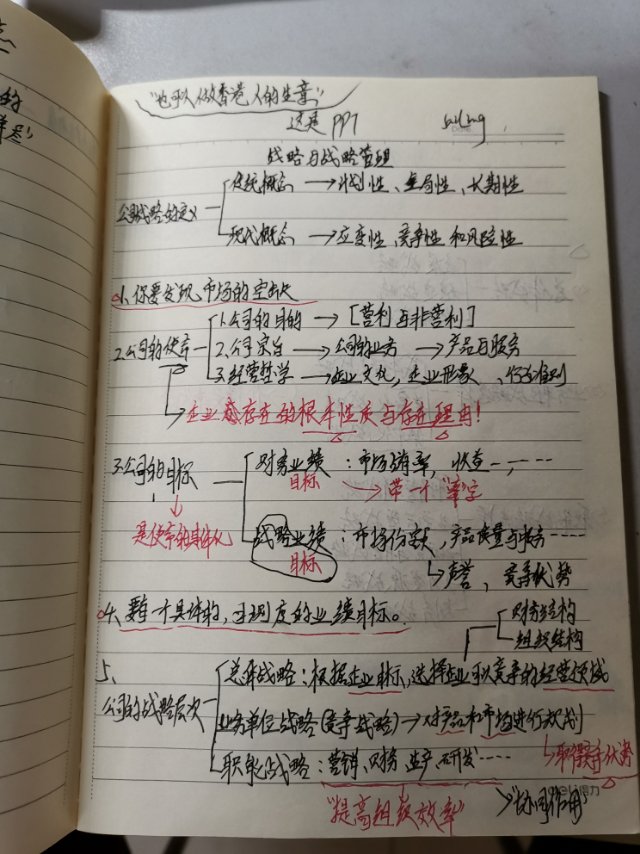 的
"也可以做香港人的生意"
这是PPT
战略与战略管理
传统概念 → 计划性、全局性、长期性
公司战略的定义
现代概念 → 应变性、竞争性和风险性
1、你要发现市场的空缺
1.公司的目的 → [营利与非营利]
2.公司的使命 2.公司宗旨 → 公司的业务 → 产品与服务
3.经营哲学 → 企业文化，企业形象、行为准则
企业存在的根本性质与存在理由！
3.公司的目标 财务业绩：市场销率，
目标 → 带一个"率"字
是使命的具体化
战略业绩：市场份额，产品质量与服务……
目标
声誉、竞争优势
4、要有一个具体的，可测度的业绩目标。
财务结构
组织结构
5、
总体战略：根据企业目标，选择企业可以竞争的经营领域
公司的战略层次
业务单位战略（竞争战略）→ 对产品和市场进行规划
取得竞争优势
职能战略：营销、财务、生产、研发……
"提高组织效率"
"协同作用"